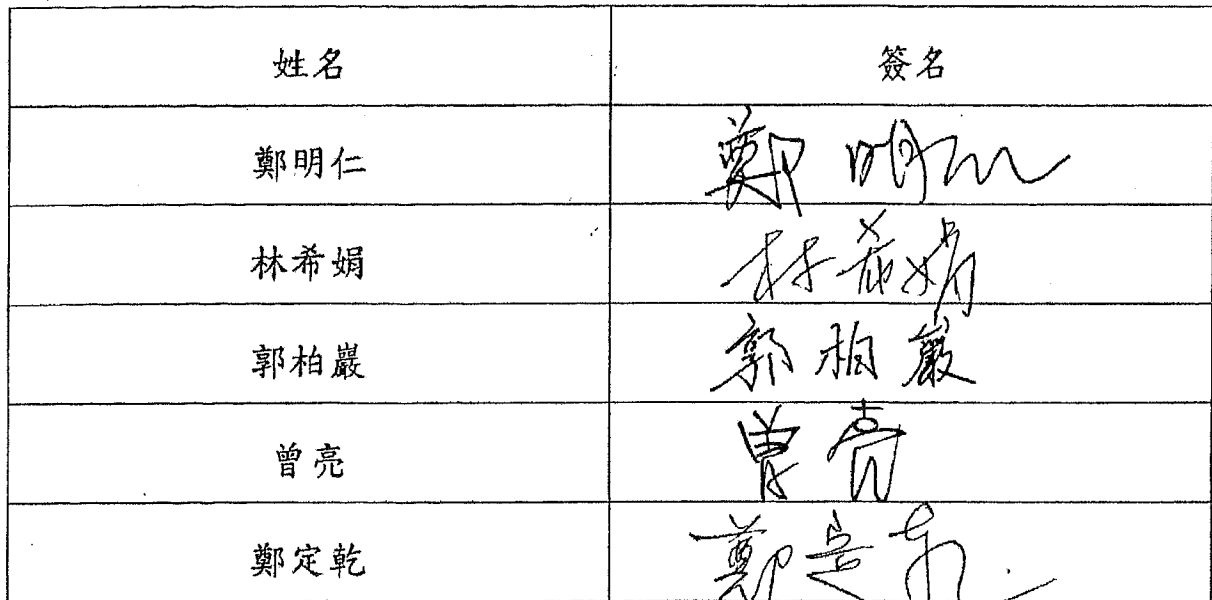 姓名 簽名
鄭明仁 鄭明仁
林希娟 林希娟
郭柏巖 郭柏巖
曾亮 曾亮
鄭定乾 鄭定乾